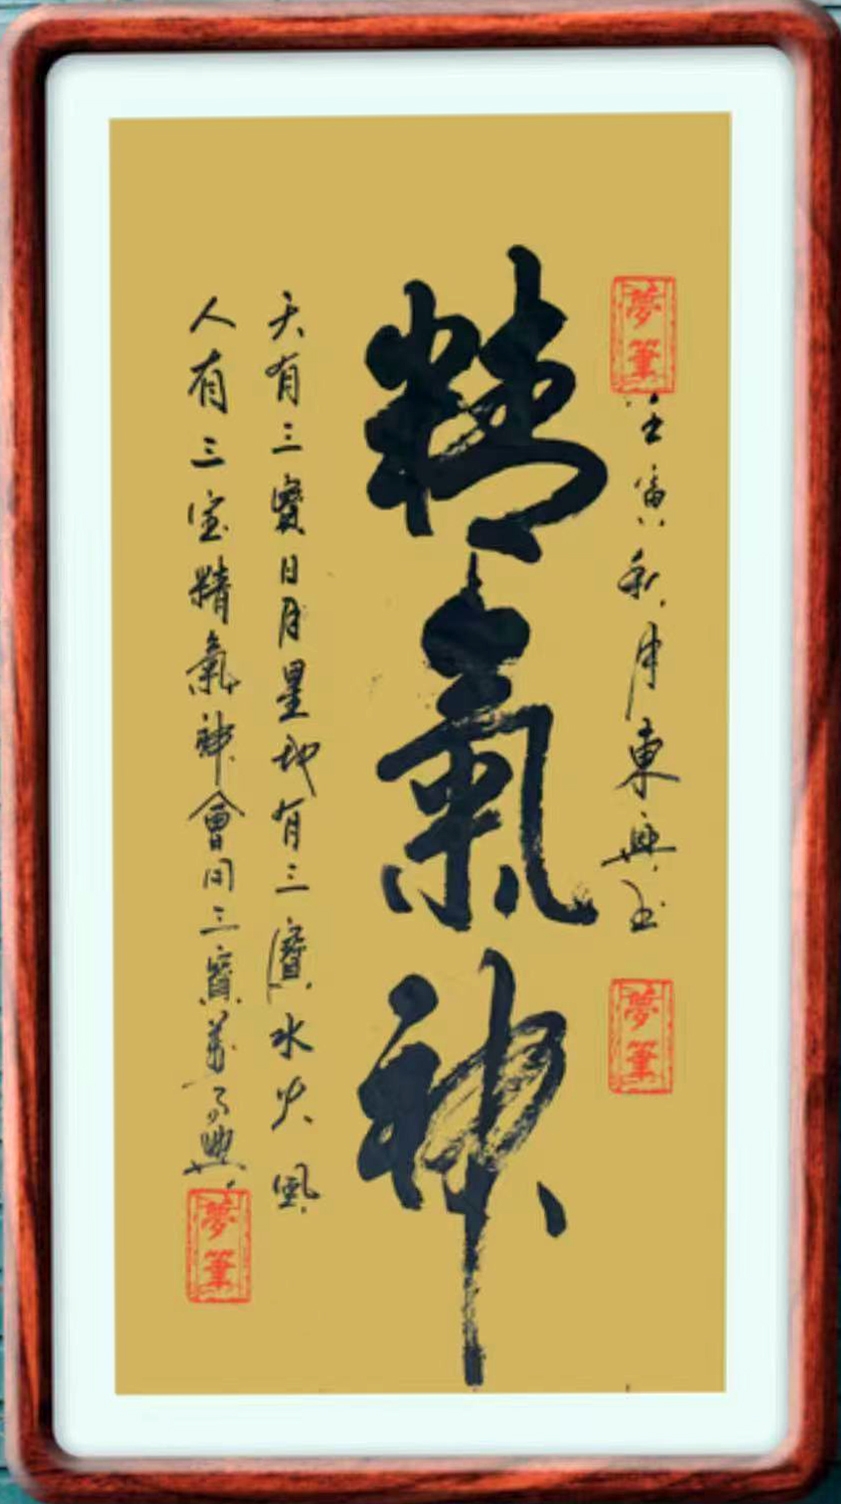 夢筆
壬寅秋月東興
夢筆
精氣神
天有三寶日月星地有三寶水火風
人有三宝精氣神會同三寶萬事興
夢筆